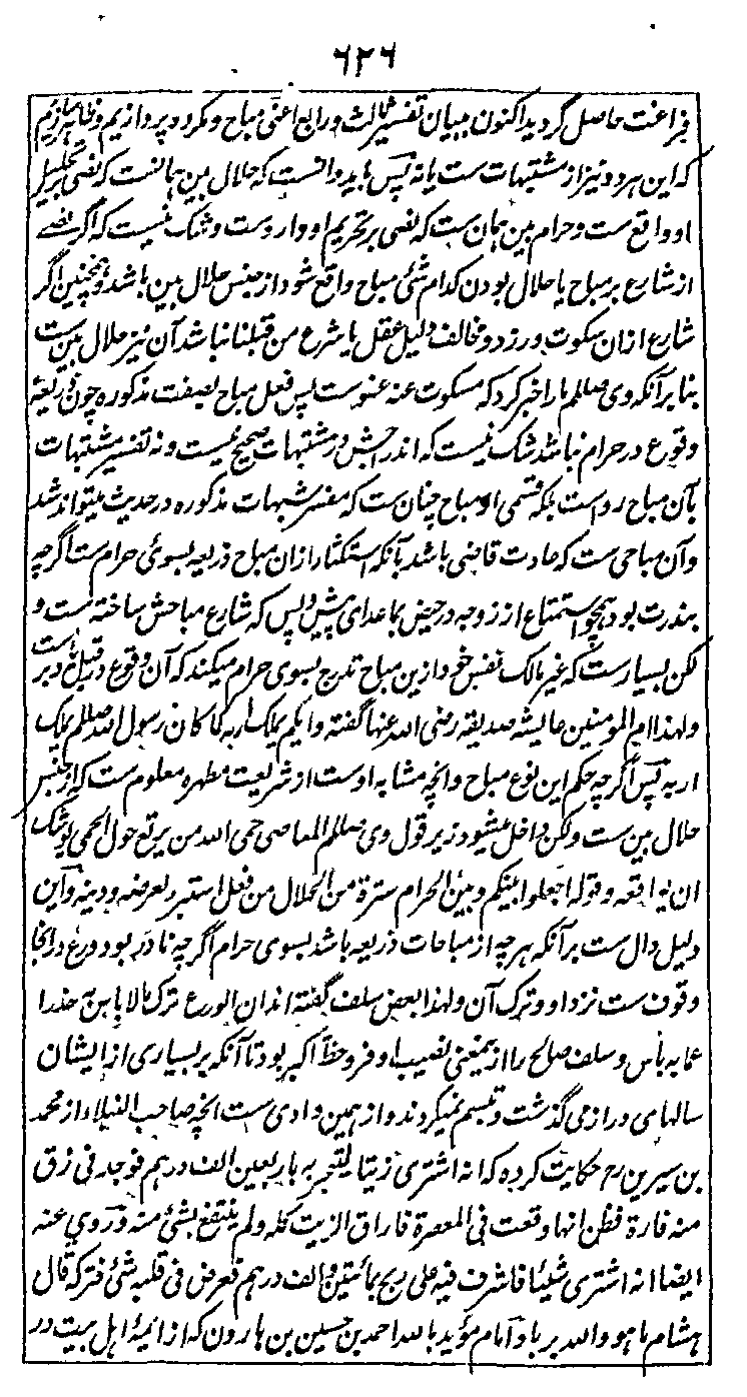 ٦٢٦
فراغت حاصل گردید اکنون ببیان تفسیر ثالث و رابع اعنی مباح و مکروه پردازیم و ظاهر سازیم
که این هر دو نیز از مشتبهات ست یا نه پس باید دانست که حلال بین همانست که نص بر تحلیل
او واقع ست و حرام بین همان ست که نص بر تحریم او وارد ست و شک نیست که اگر نصے
از شارع بر مباح یا حلال بودن کدام شئ مباح واقع شود از جنس حلال بین باشد و همچنین اگر
شارع ازان سکوت ورزد و مخالف دلیل عقل یا شرع من قبلنا نباشد آن نیز حلال بین ست
بنا بر آنکه وی صللم ما را خبر کرد که مسکوت عنه عفو ست پس فعل مباح بصفت مذکوره چون ذریعۀ
وقوع در حرام نباشد شک نیست که اندراجش در مشتبهات صحیح نیست و نه تفسیر مشتبهات
بآن مباح رواست بلکه قسمی از مباح چنان ست که مفسر شبهات مذکوره در حدیث میتواند شد
و آن مباحی ست که عادت قاضی باشد بآنکه استکثار ازان مباح ذریعه بسوئ حرام ست اگرچه
بندرت بود همچو استمتاع از زوجه در حیض بما عدای پیش و پس که شارع مباحش ساخته ست و
لکن بسیار ست که غیر مالک نفس خود ازین مباح تدرج بسوی حرام میکند که آن وقوع در قبل یا دبر ست
و لهذا ام المؤمنین عایشه صدیقه رضی الله عنها گفته و ایکم یملک اربه کما کان رسول الله صللم یملک
اربه پس اگرچه حکم این نوع مباح و انچه مشابه اوست از شریعت مطهره معلوم ست که از جنس
حلال بین ست و لکن داخل میشود زیر قول وی صللم المعاصی حمی الله من یرتع حول الحمی یوشک
ان یواقعه و قوله اجعلوا بینکم و بین الحرام سترة من الحلال من فعل استبرء لعرضه و دینه و این
دلیل دال ست بر آنکه هر چه از مباحات ذریعه باشد بسوی حرام اگرچه نادر بود ورع دران
وقوف ست نزد او و ترک آن و لهذا بعض سلف گفته اند ان الورع ترک ما لا باس به حذرا
عما به بأس و سلف صالح را از همین معنی نصیب اوفر و حظ اکبر بود تا آنکه بر بسیاری از ایشان
سالهای دراز می گذشت و تبسم نمیکردند و از همین وادی ست انچه صاحب النبلاء از محمد
بن سیرین رح حکایت کرده که انه اشتری زیتا لیتجر به باربعین الف درهم فوجد فی زق
منه فارة فظن انها وقعت فی المعصرة فاراق الزیت کله و لم ینتفع بشئ منه و روی عنه
ایضا انه اشتری شیئا فاشرف فیه علی ربح بمائتین و الف درهم فعرض فی قلبه شئ فترکه قال
هشام ما هو والله بربا و امام مؤید بالله احمد بن حسین بن هارون که از ائمۀ اهل بیت در